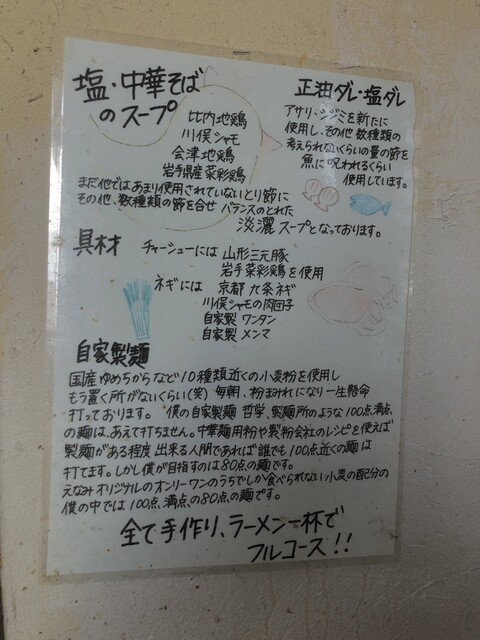 塩・中華そば
のスープ
比内地鶏
川俣シャモ
会津地鶏
岩手県産菜彩鶏
まだ他ではあまり使用されていないとり節に
その他、数種類の節を合せ バランスのとれた
淡麗スープとなっております。
正油ダレ・塩ダレ
アサリ・シジミを新たに
使用し、その他 数種類の
考えられないくらいの量の節を
魚に呪われるくらい
使用しています。
具材
チャーシューには 山形三元豚
岩手菜彩鶏を使用
ネギには 京都 九条ネギ
川俣シャモの肉団子
自家製 ワンタン
自家製 メンマ
自家製麺
国産ゆめちからなど10種類近くの小麦粉を使用し
もう置く所がないくらい(笑) 毎朝、粉まみれになり一生懸命
打っております。 僕の自家製麺 哲学、製麺所のような100点、満点、
の麺は、あえて打ちません。中華麺用粉や製粉会社のレシピを使えば
製麺がある程度 出来る人間であれば誰でも100点近くの麺は
打てます。しかし僕が目指すのは80点の麺です。
えなみオリジナルのオンリーワンのうちでしか食べられない小麦の配分の
僕の中では100点、満点、の80点の麺です。
全て手作り、ラーメン一杯で
フルコース!!